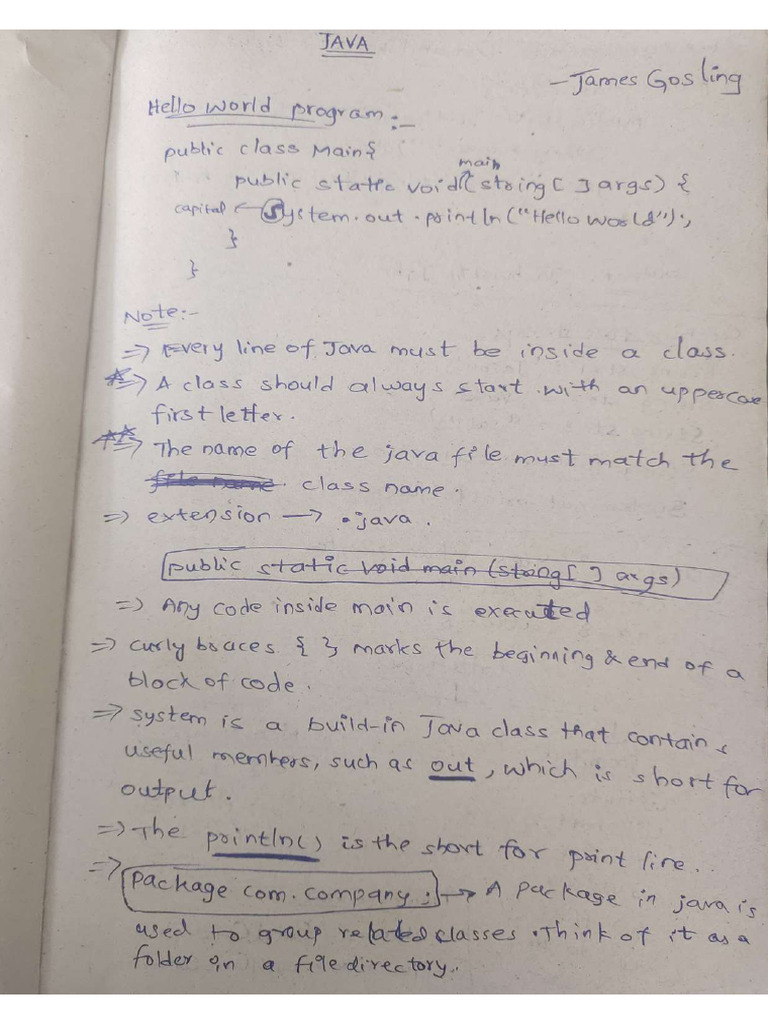 JAVA
- James Gosling
Hello world program:-
public class Main{
main
public static void (string[ ] args) {
capital ← System.out.println("Hello world");
}
}
Note:-
⇒ Every line of Java must be inside a class.
⇒ A class should always start with an uppercase
first letter.
⇒ The name of the java file must match the
file name class name.
⇒ extension → .java.
public static void main (string[ ] args)
⇒ Any code inside main is executed
⇒ curly braces { }, marks the beginning & end of a
block of code.
⇒ system is a build-in Java class that contains
useful members, such as out, which is short for
output.
⇒ The println() is the short for print line..
⇒
package com.company; → A package in java is
used to group related classes. Think of it as a
folder in a file directory.